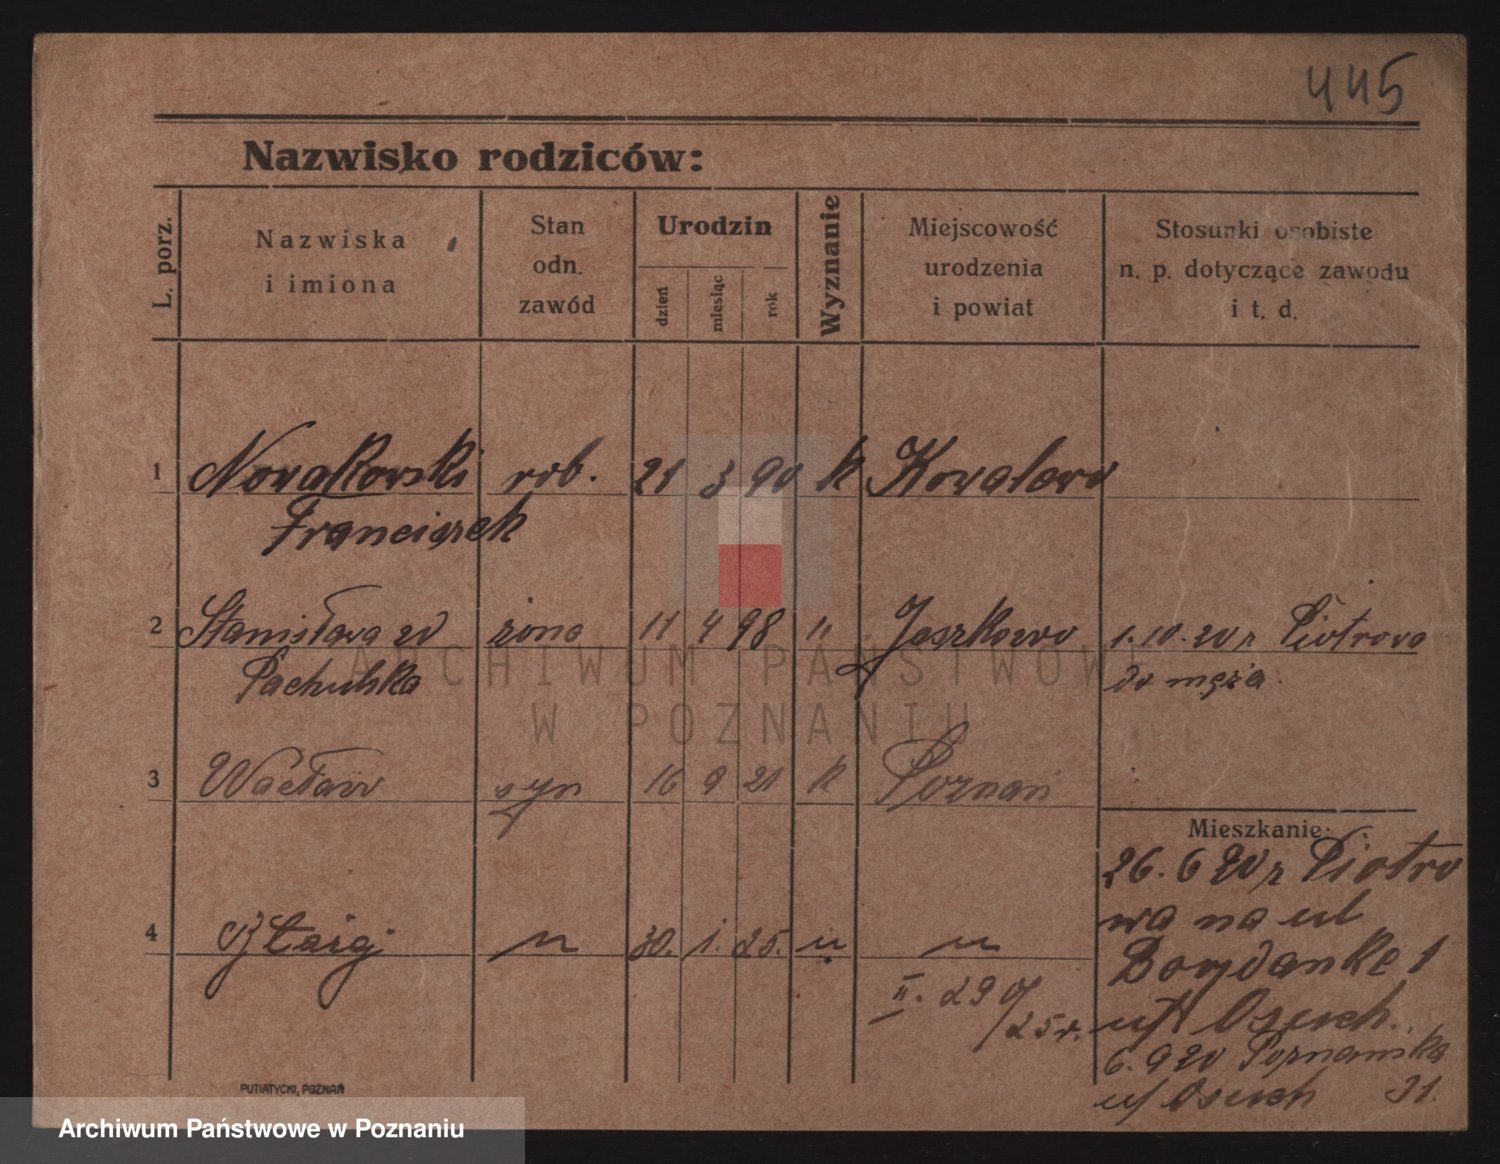 445
Nazwisko rodziców:
L. porz.
Nazwiska
i imiona
Stan
odn.
zawód
Urodzin
dzień
miesiąc
rok
Wyznanie
Miejscowość
urodzenia
i powiat
Stosunki osobiste
n. p. dotyczące zawodu
i t. d.
1 Nowakowski rob. 21 3 90 k Kowalewo
Franciszek
2 Stanisława żona 11 4 98 " Jaszkowo 1.10.20 z Piotrowa
Pachulska do męża
3 Wacław syn 16 9 21 k Poznań
Mieszkanie:
26.6 20 z Piotro
wa na ul
4 30. 1. 25.
Bogdanke 1
II. 29
25r.
6.9 20 Poznańska
31.
PUTIATYCKI, POZNAŃ
ARCHIWUM PAŃSTWOWE
W POZNANIU
Archiwum Państwowe w Poznaniu